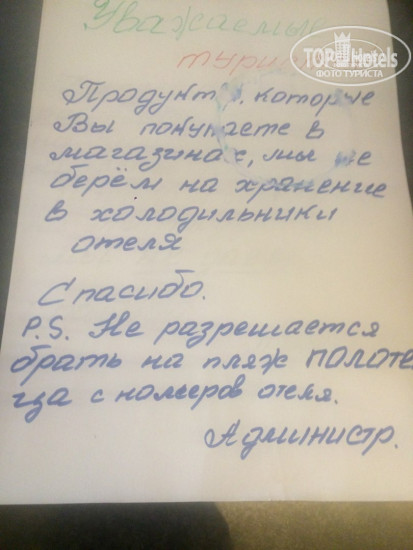 Уважаемые
тури
TOP Hotels
ФОТО ТУРИСТА
Продукты, которые
Вы покупаете в
магазинах, мы не
берём на хранение
в холодильники
отеля
Спасибо.
P.S. Не разрешается
брать на пляж ПОЛОТЕ
ца с номеров отеля.
Администр.